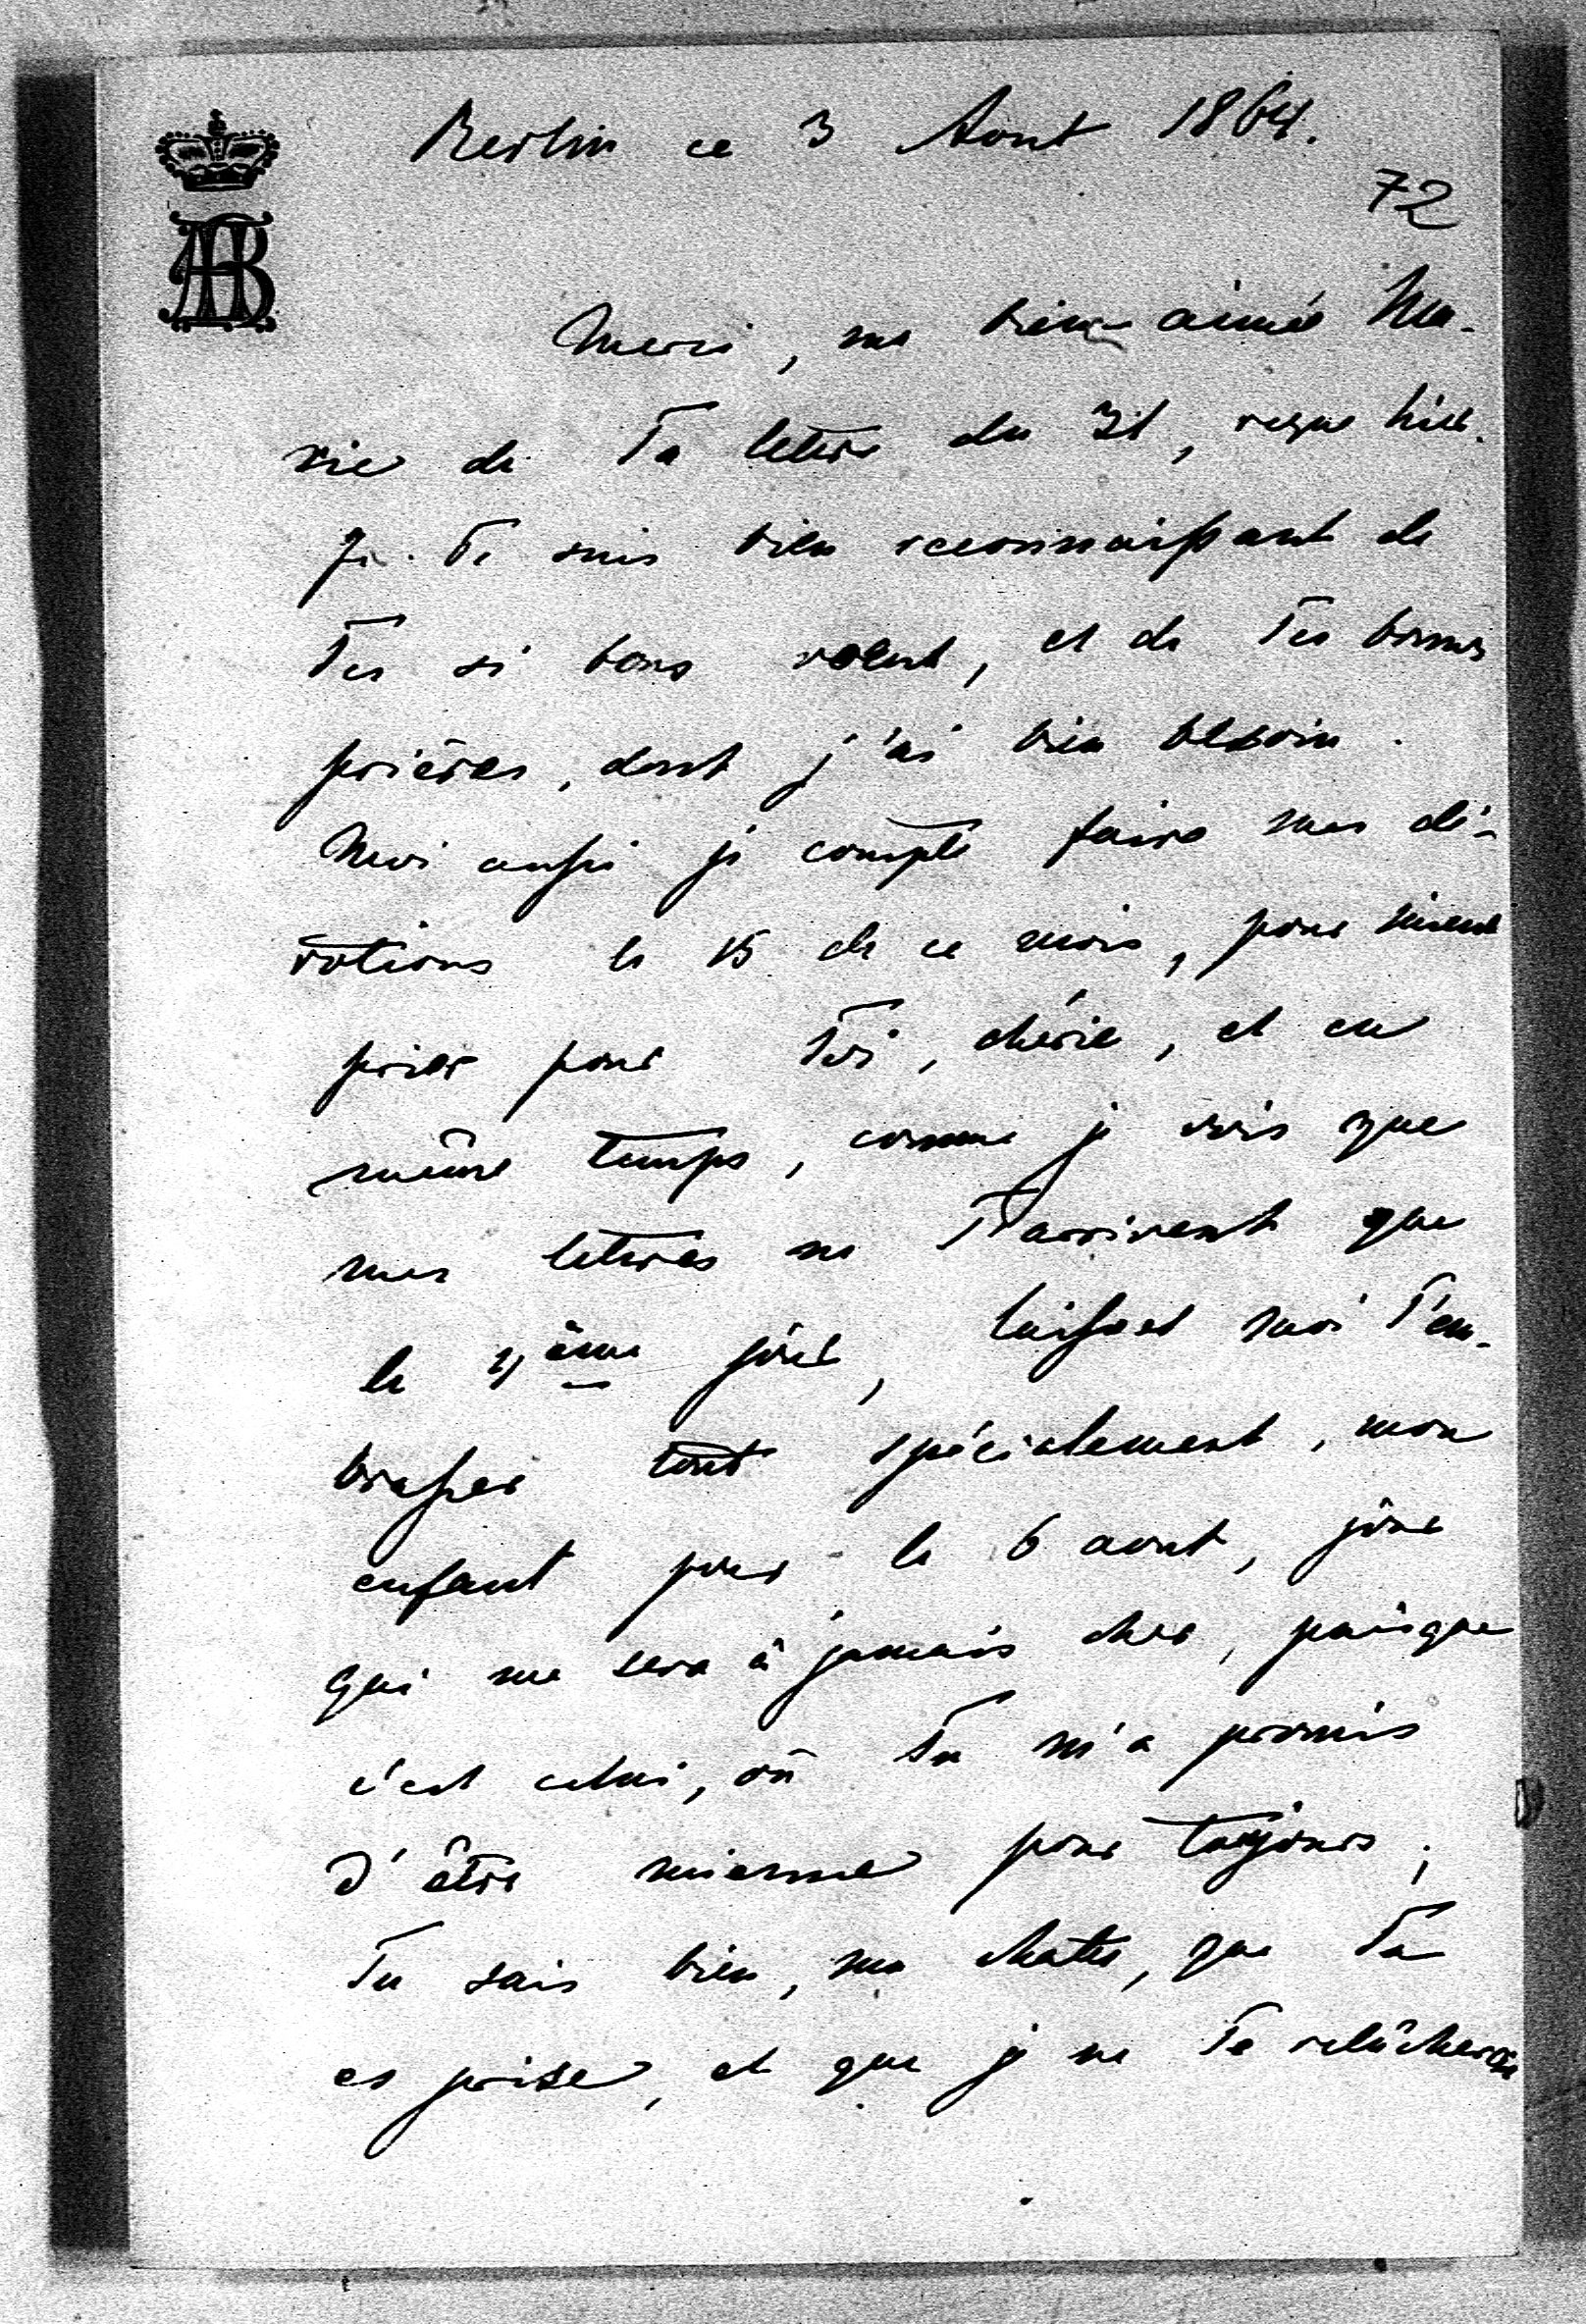 Berlin ce 3 Aout 1864.
72
AB
Merci, ma bien aimée Ma-
rie de Ta lettre du 31, reçue hier.
Je Te suis bien reconnaissant de
Tes si bons voeux, et de Tes bonnes
prières, dont j'ai bien besoin.
Moi aussi je compte faire mes dé-
votions le 15 de ce mois, pour mieux
prier pour Toi, chérie, et en
même temps, comme je vois que
mes lettres ne T'arrivent que
le ème jour, laisses moi T'em-
brasser tout spécialement, mon
enfant pour le 6 aout, jour
qui me sera à jamais cher, puisque
c'est celui, où Tu m'a promis
d'être mienne pour toujours;
Tu sais bien, ma chatte, que Tu
es prise, et que je ne Te relâcherai